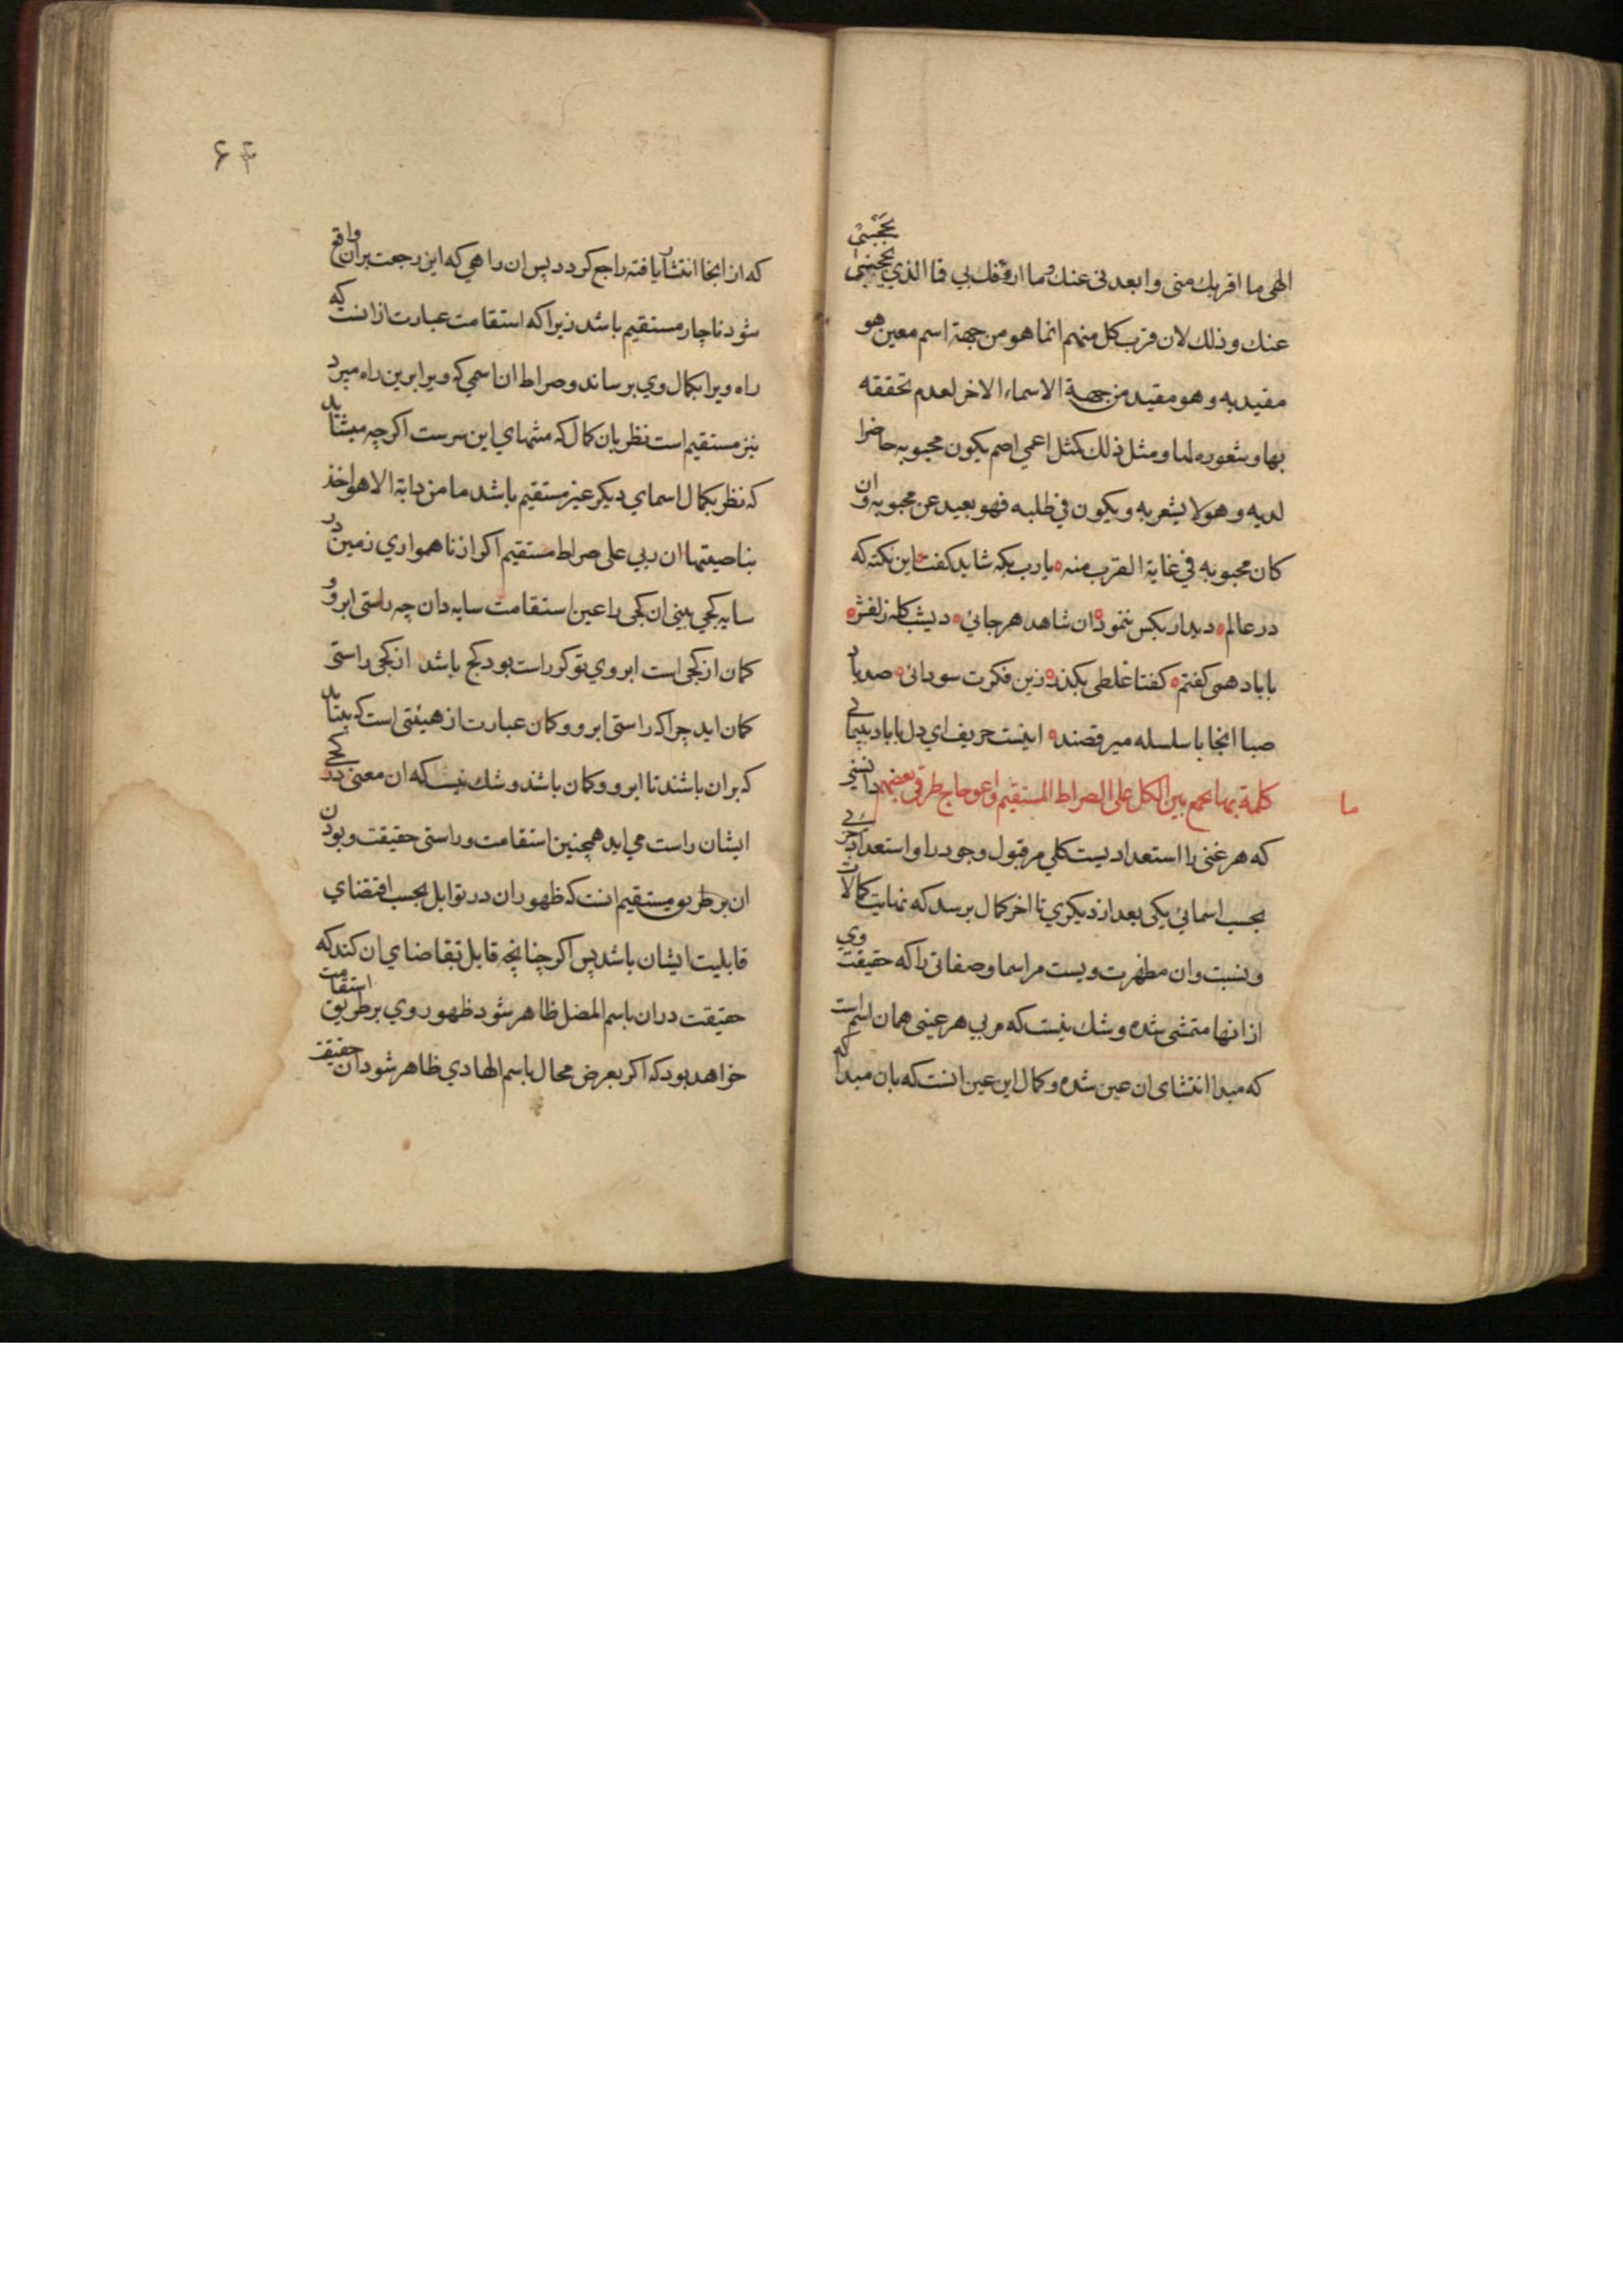 الهی ما اقربك منی وابعدنی عنك وما ارؤفك بي فما الذي يحجبنی
عنك وذلك لان قرب كل منهم انما هو من جهة اسم معين هو
مقيد به وهو مقيد من جهة الاسماء الاخر لعدم تحققه
بها وشعوره لها ومثل ذلك كمثل اعمي اصم يكون محبوبه حاضرا
لديه وهو لا يشعر به ويكون في طلبه فهو بعيد عن محبوبه وان
كان محبوبه في غاية القرب منه يارب بكه شايد كفت اين نكته كه
در عالم ديدار بكس ننمود ان شاهد هر جائي ديشب كله زلفش
با باد همی كفتم كفتا غلطی بكذر زين فكرت سودائی صد باد
صبا انجا با سلسله ميرقصند اينست حريف اي دل تا باد بپيمائي
ما
كلمة بها يجمع بين الكل علی الصراط المستقيم واعوجاج طرق بعضهم دانستي
كه هر عينی را استعداديست كلي مر قبول وجود را و استعداد جزئي
بحسب اسمائي يكی بعد از ديكري تا اخر كمال برسد كه نهايت كمالات
وی نسبت وان مظهرت ويست مر اسما و صفاتی را كه حقيقت وي
از انها متمشی شده و شك نيست كه مربي هر عينی همان اسم است
كه مبدا انتشای ان عين شده و كمال اين عين انست كه بان مبدا كه
۶۴
كه از انجا انتشا يافته راجع كردد پس ان راهي كه اين رجعت بران واقع
شود ناچار مستقيم باشد زيرا كه استقامت عبارت ازانست كه
راه ويرا بكمال وي برساند و صراط ان اسمي كه ويرا برين راه ميبرد
نيز مستقيم است نظر بان كمال كه منتهاي اين سرست اكر چه ميشايد
كه نظر بكمال اسماي ديكر غير مستقيم باشد ما من دابة الا هو اخذ
بناصيتها ان ربي علی صراط مستقيم اكر از ناهمواري زمين در
سايه كجي بينی ان كجی را عين استقامت سايه دان چه راستی ابرو
كمان از كجی است ابروي تو كر راست بود كج باشد از كجی راستی
كمان ايد چرا كه راستی ابرو و كمان عبارت از هيئتی است كه بايد
كه بران باشند تا ابرو و كمان باشد و شك نيست كه ان معنی در كجي
ايشان راست می ايد همچنين استقامت و راستی حقيقت وبودن
ان بر طريق مستقيم انست كه ظهور ان در قوابل بحسب اقتضاي
قابليت ايشان باشد پس اكر چنانچه قابل تقاضاي ان كند كه
حقيقت دران باسم المضل ظاهر شود ظهور وي بر طريق استقامت
خواهد بود كه اكر بعرض محال باسم الهادي ظاهر شود ان حقيقة